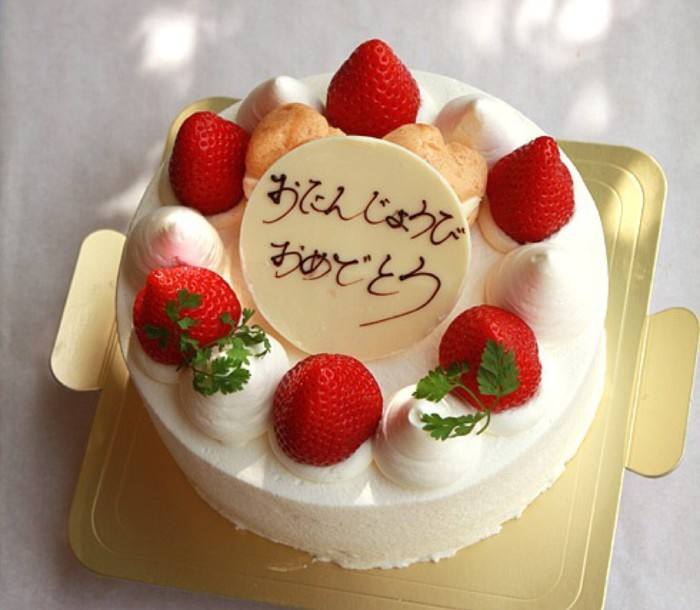 おたんじょうび
おめでとう